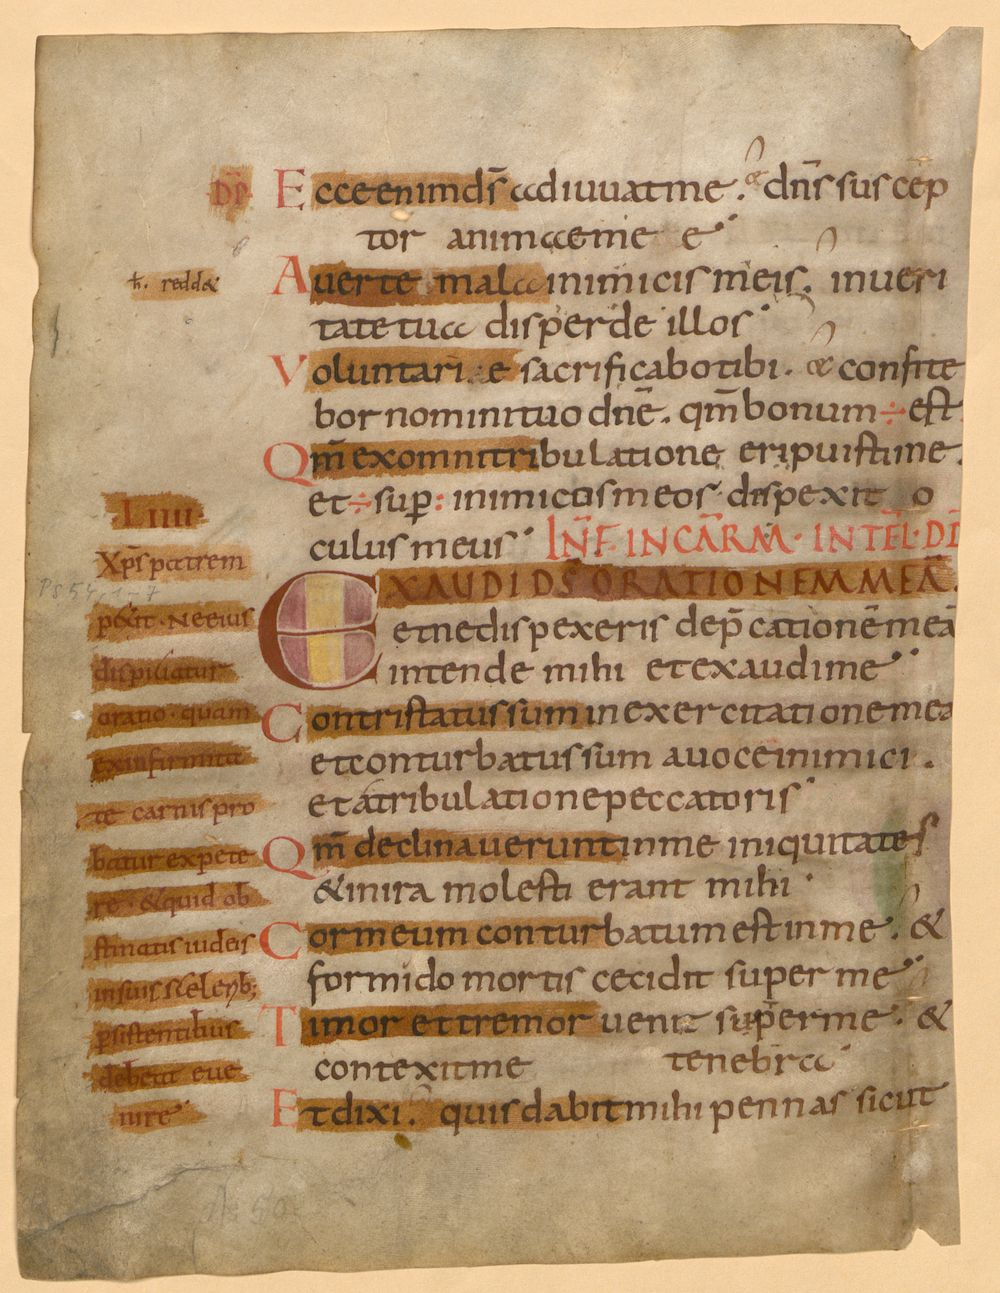 DP̄
Ecce enim ds̄ adiuuat me. & dn̄s suscep
tor animae meę
ħ. redd&
Auerte mala inimicis meis. in ueri
tate tua disperde illos
Voluntarie sacrificabo tibi. & confite
bor nomini tuo dn̄e. qm̄ bonum ÷ est
Qm̄ ex omni tribulatione eripuisti me.
et ÷ sup̄: inimicos meos dispexit o
culus meus IN̄ F̄. IN CĀRM. INTĒL. DD̄
LIIII
EXAUDI DS̄ ORATIONEM MEĀ.
et ne dispexeris dep̄cationē meā
intende mihi et exaudi me
Contristatus sum in exercitatione mea
et conturbatus sum a uoce inimici.
et a tribulatione peccatoris
Qm̄ declinauerunt in me iniquitates
& in ira molesti erant mihi
Cor meum conturbatum est in me. &
formido mortis cecidit super me
Timor et tremor uenit super me. &
contexit me tenebra
Et dixi. quis dabit mihi pennas sicut
Xp̄s patrem
Ps 54, 1-7
p&it. Ne eius
dispiciatur
oratio. quam
ex infirmita
te carnis pro
batur expete
re. & quid ob
stinatis iudeis
in suis scelerib;
p̱sistentibus
debeat eue
nire